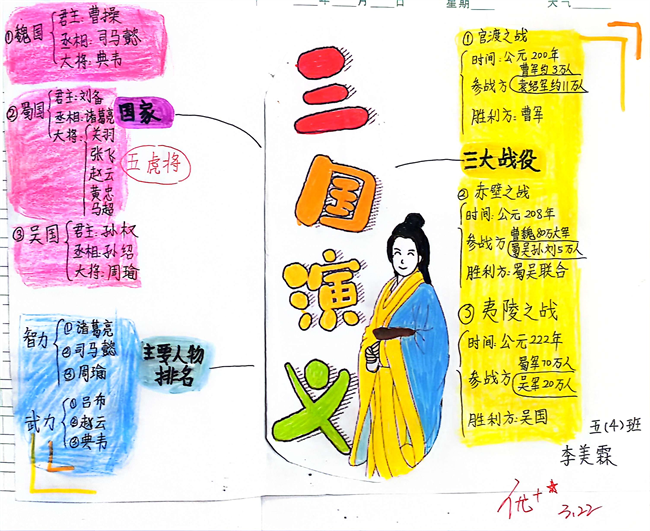 年 月 日 星期 天气
三国演义
国家
①魏国
君主:曹操
丞相:司马懿
大将:典韦
②蜀国
君主:刘备
丞相:诸葛亮
大将:关羽
张飞
赵云
黄忠
马超
五虎将
③吴国
君主:孙权
丞相:孙绍
大将:周瑜
主要人物
排名
智力
①诸葛亮
②司马懿
③周瑜
武力
①吕布
②赵云
③典韦
三大战役
①官渡之战
时间:公元200年
参战方
曹军约3万人
袁绍军约11万人
胜利方:曹军
②赤壁之战
时间:公元208年
参战方
曹魏80万大军
蜀吴孙刘5万人
胜利方:蜀吴联合
③夷陵之战
时间:公元222年
参战方
蜀军70万人
吴军20万人
胜利方:吴国
五(4)班
李美霖
优+
3.22